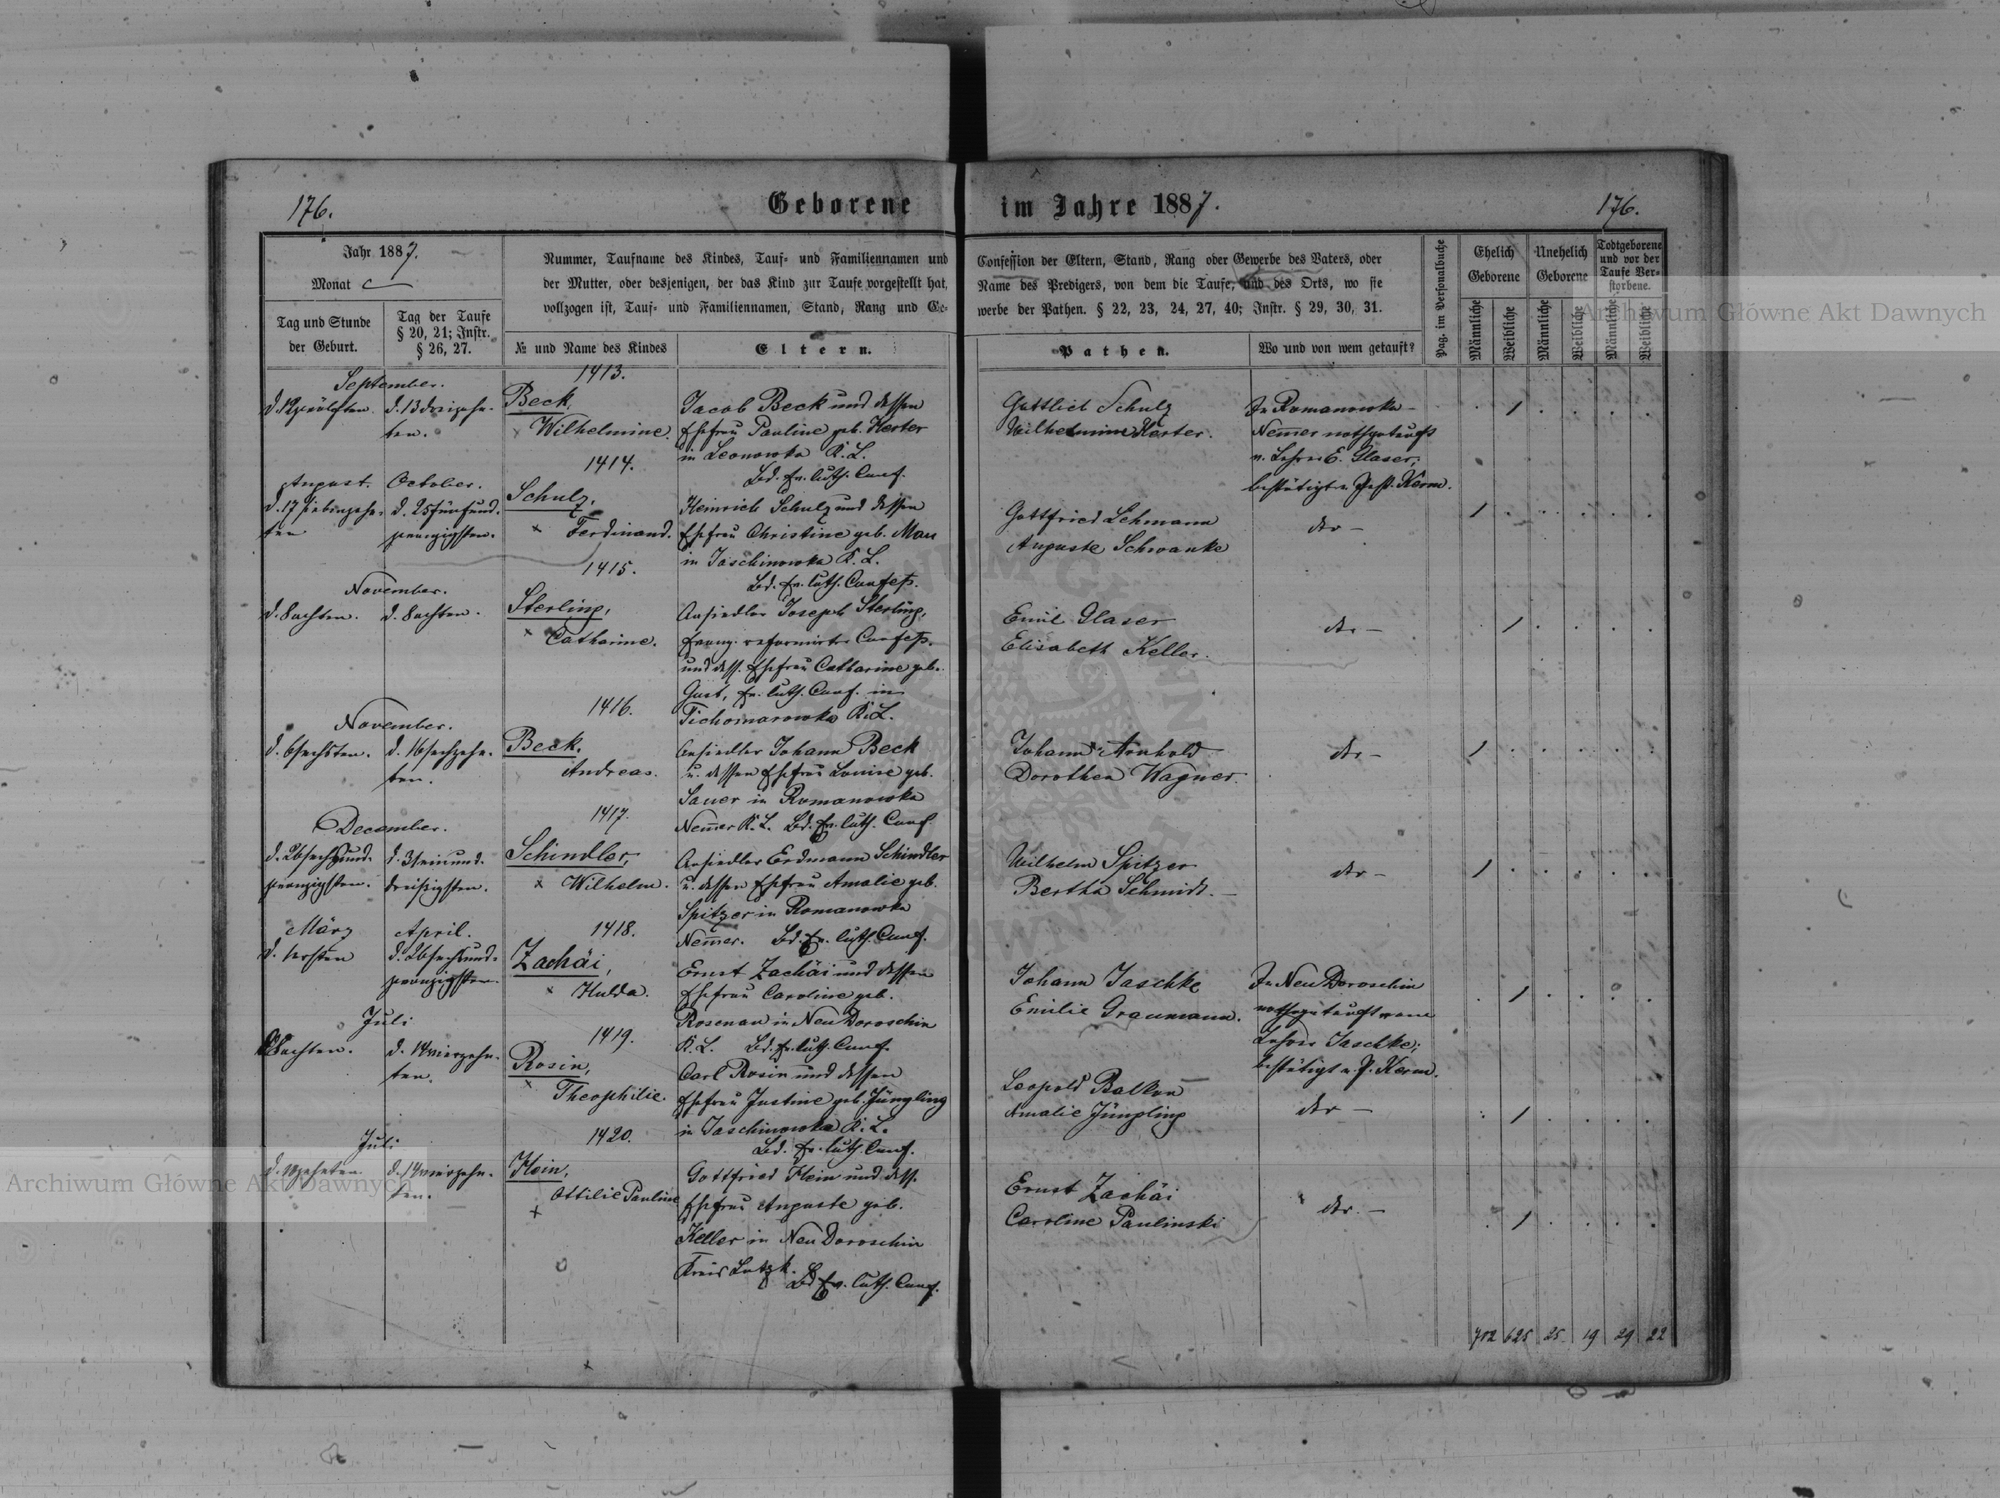 176.
Geborene
im Jahre 1887.
176.
Jahr 1887.
Monat
Tag und Stunde
der Geburt.
Tag der Taufe
§ 20, 21; Instr.
§ 26, 27.
Nummer, Taufname des Kindes, Tauf= und Familiennamen und
der Mutter, oder desjenigen, der das Kind zur Taufe vorgestellt hat,
vollzogen ist, Tauf= und Familiennamen, Stand, Rang und Ge=
№ und Name des Kindes
Eltern.
Confession der Eltern, Stand, Rang oder Gewerbe des Vaters, oder
Name des Predigers, von dem die Taufe, und des Orts, wo sie
werbe der Pathen. § 22, 23, 24, 27, 40; Instr. § 29, 30, 31.
Pathen.
Wo und von wem getauft?
Pag. im Personalbuche
Ehelich
Geborene
Unehelich
Geborene
Todtgeborene
und vor der
Taufe Ver=
storbene.
Männliche
Weibliche
Männliche
Weibliche
Männliche
Weibliche
September.
d. 12 zwölften.
d. 13 dreizehn-
ten.
1413.
Beck,
Wilhelmine.
Jacob Beck und dessen
Ehefrau Pauline geb. Herter
in Leonowka K. L.
Bd. Ev. luth. Conf.
Gottlieb Schulz
Wilhelmine Herter.
In Romanowka
Nemer nothgetauft
v. Lehrer E. Glaser,
bestätigt v. Past. Kerm.
August.
d. 17 siebenzehn-
ten
October.
d. 25 fünfund-
zwanzigsten.
1414.
Schulz,
Ferdinand.
Heinrich Schulz und dessen
Ehefrau Christine geb. Mau
in Jaschinowka K. L.
Bd. Ev. luth. Confess.
Gottfried Lehmann
Auguste Schwanke
dto —
November.
d. 8 achten.
d. 8 achten.
1415.
Sterling,
Catharine.
Ansiedler Joseph Sterling,
Evang. reformirter Confess.
und dess. Ehefrau Catharine geb.
Gust, Ev. luth. Conf. in
Tichomarowka K. L.
Emil Glaser
Elisabeth Keller.
dto —
November.
d. 6 sechsten.
d. 16 sechzehn-
ten.
1416.
Beck,
Andreas.
Ansiedler Johann Beck
u. dessen Ehefrau Louise geb.
Sauer in Romanowka
Nemer K. L. Bd. Ev. luth. Conf.
Johann Arnhold
Dorothea Wagner.
dto —
December.
d. 26 sechsund-
zwanzigsten.
d. 31 einund-
dreißigsten.
1417.
Schindler,
Wilhelm.
Ansiedler Erdmann Schindler
u. dessen Ehefrau Amalie geb.
Spitzer in Romanowka
Nemer. Bd. Ev. luth. Conf.
Wilhelm Spitzer
Bertha Schmidt. —
dto —
März
d. 1 ersten
April.
d. 26 sechsund-
zwanzigsten.
1418.
Zachäi,
Hulda.
Ernst Zachäi und dessen
Ehefrau Caroline geb.
Rosenau in Neu Doroschin
K. L. Bd. Ev. luth. Conf.
Johann Jaschke
Emilie Graumann.
In Neu Doroschin
nothgetauft vom
Lehrer Jaschke;
bestätigt v. P. Kerm.
Juli
8 achten.
d. 14 vierzehn-
ten.
1419.
Rosin,
Theophilie.
Carl Rosin und dessen
Ehefrau Justine geb. Jüngling
in Jaschinowka K. L.
Bd. Ev. luth. Conf.
Leopold
Amalie Jüngling
dto —
Juli
d. 10 zehnten.
d. 14 vierzehn-
ten.
1420.
Hein,
Ottilie Pauline
Gottfried Hein und dess.
Ehefrau Auguste geb.
Keller in Neu Doroschin
Kreis Lutzk.
Bd. Ev. luth. Conf.
Ernst Zachäi
Caroline Paulinski
dto. —
702 625 25 19 29 22
Archiwum Główne Akt Dawnych
Archiwum Główne Akt Dawnych